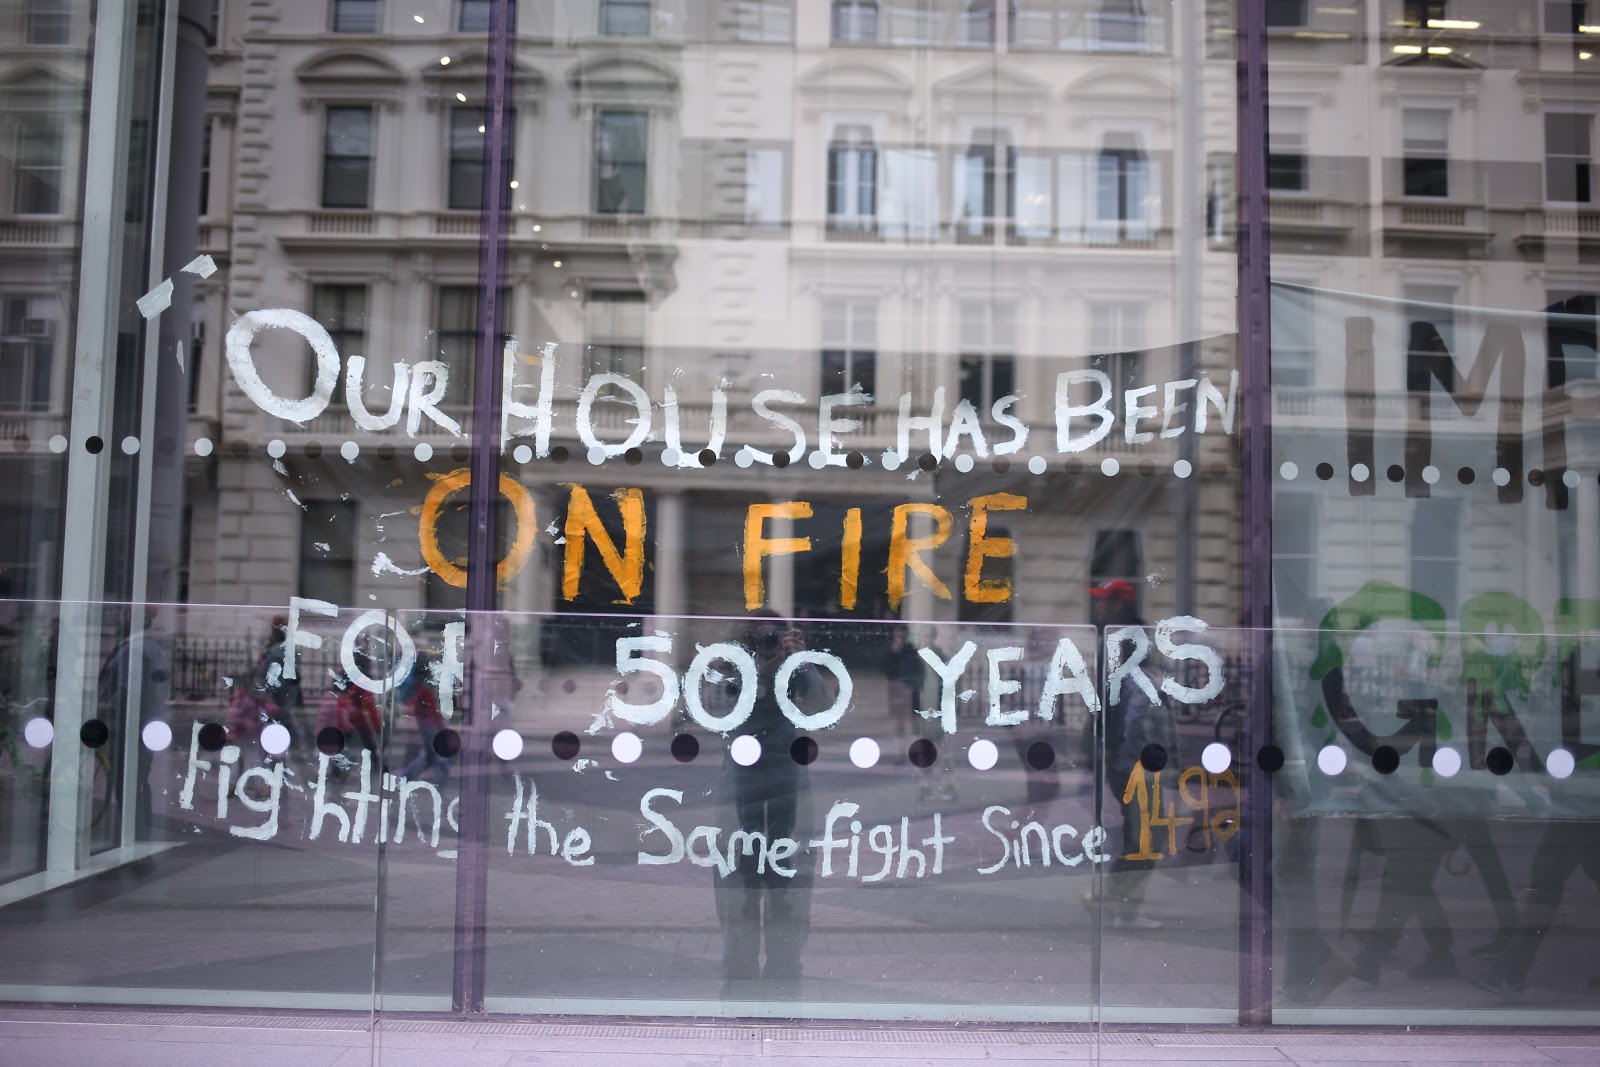 OUR HOUSE HAS BEEN
ON FIRE
FOR 500 YEARS
Fighting the Same fight Since 1492
IMP
GRE